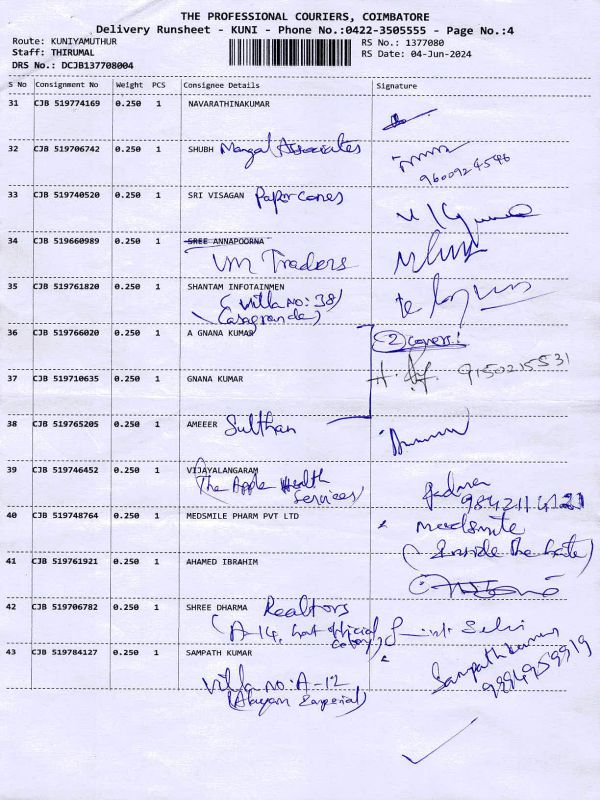 THE PROFESSIONAL COURIERS, COIMBATORE
Delivery Runsheet - KUNI - Phone No.:0422-3505555 - Page No.:4
Route: KUNIYAMUTHUR RS No.: 1377080
Staff: THIRUMAL RS Date: 04-Jun-2024
DRS No.: DCJB137708004
S No Consignment No Weight PCS Consignee Details Signature
31 CJB 519774169 0.250 1 NAVARATHINAKUMAR
32 CJB 519706742 0.250 1 SHUBH Mangal Associates
9600924546
33 CJB 519740520 0.250 1 SRI VISAGAN Paper cones
34 CJB 519660989 0.250 1 SREE ANNAPOORNA
VM Traders
35 CJB 519761820 0.250 1 SHANTAM INFOTAINMEN
(Villa no: 38)
Casagrande)
36 CJB 519766020 0.250 1 A GNANA KUMAR 2 covers!
9150215531
37 CJB 519710635 0.250 1 GNANA KUMAR
38 CJB 519765205 0.250 1 AMEEER Sulthan
39 CJB 519746452 0.250 1 VIJAYALANGARAM
The Apple Health
Services
40 CJB 519748764 0.250 1 MEDSMILE PHARM PVT LTD
Medsmile
(Inside the Gate)
41 CJB 519761921 0.250 1 AHAMED IBRAHIM
42 CJB 519706782 0.250 1 SHREE DHARMA Realtors
(A-14, official
43 CJB 519784127 0.250 1 SAMPATH KUMAR Sampathkumar
9894959919
Villa no: A-12